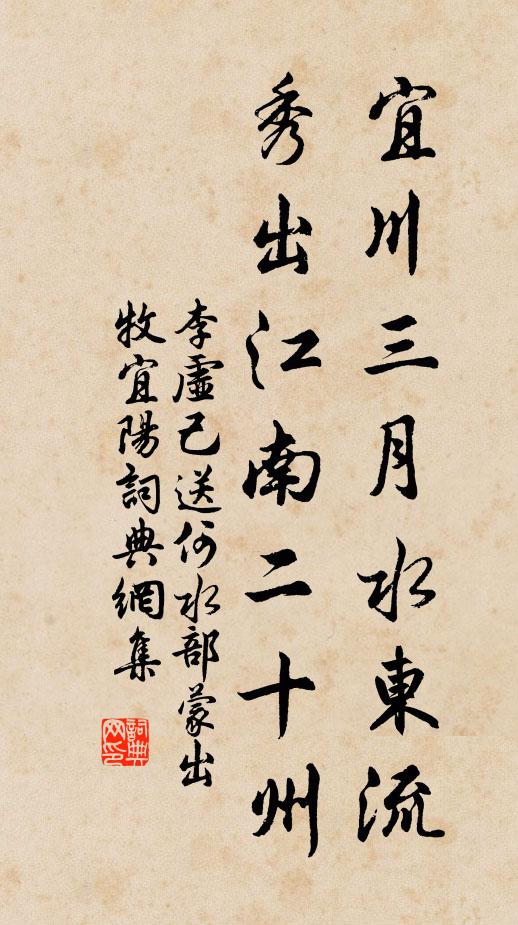 宜川三月水東流
秀出江南二十州
李虛己送何水部蒙出
牧宜陽詞典網集
詞典
网印